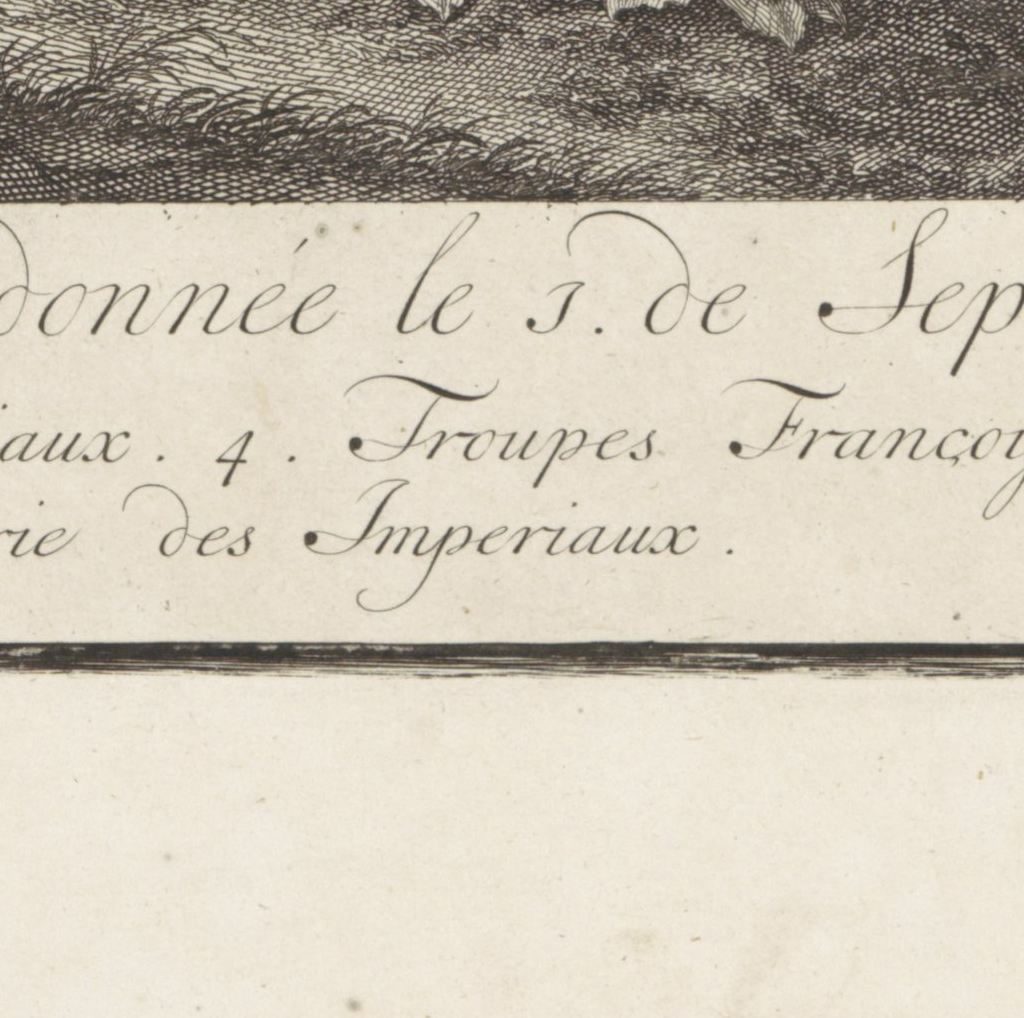 donnée le 1. de Sep
iaux. 4. Troupes Françoy
rie des Imperiaux.